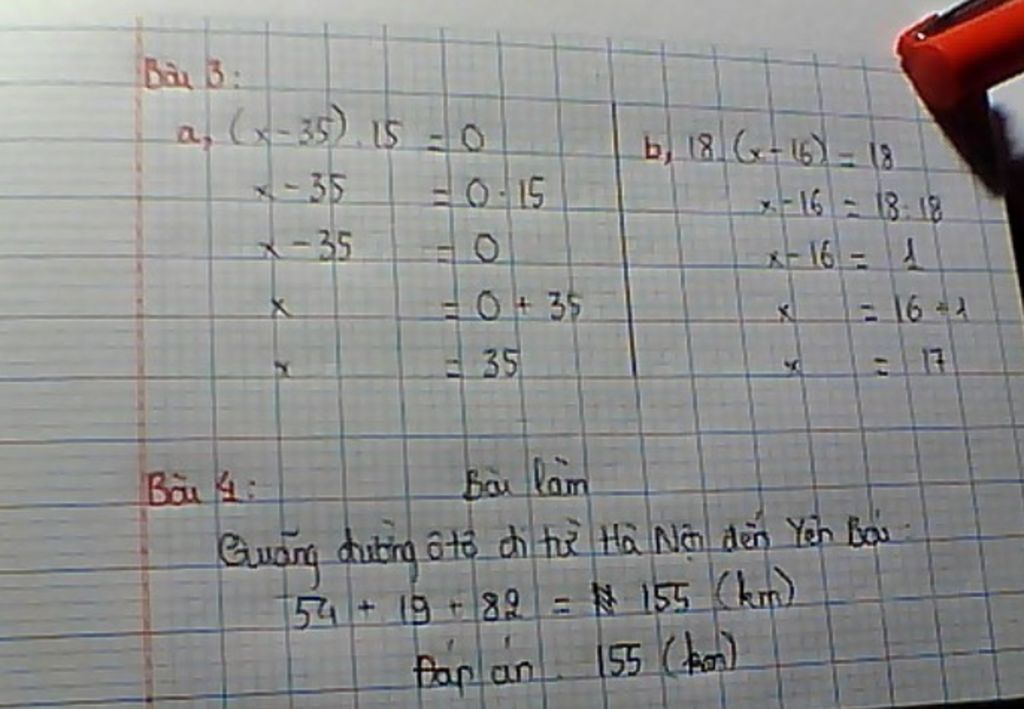 Bài 3:
a, (x - 35) . 15 = 0
x - 35 = 0 : 15
x - 35 = 0
x = 0 + 35
x = 35
b, 18 (x - 16) = 18
x - 16 = 18 : 18
x - 16 = 1
x = 16 + 1
x = 17
Bài 4: Bài làm
Quãng đường ôtô đi từ Hà Nội đến Yên Bái.
54 + 19 + 82 = 155 (km)
Đáp án. 155 (km)